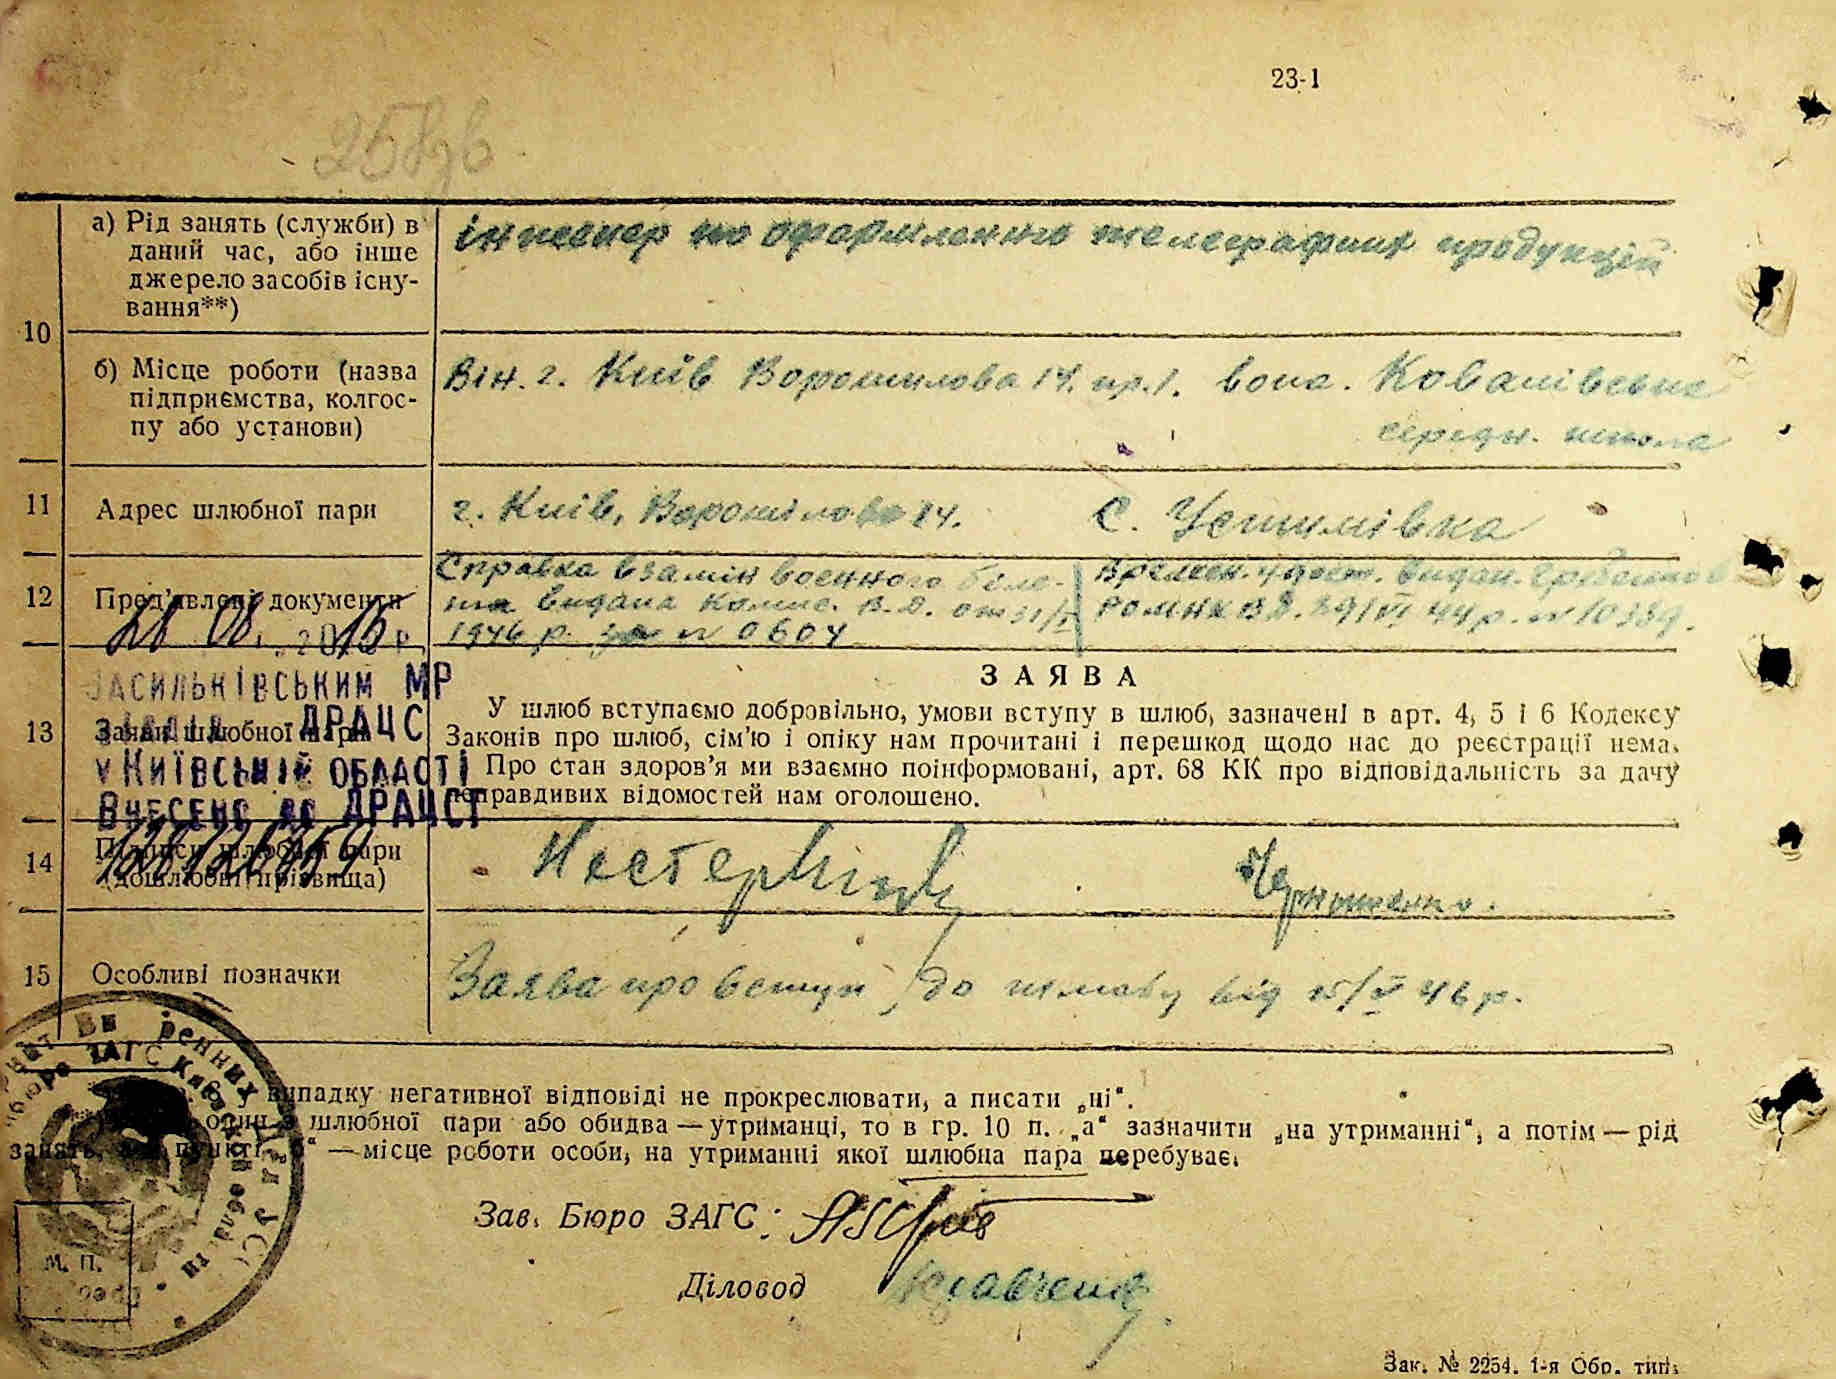 23-1
10
а) Рід занять (служби) в
даний час, або інше
джерело засобів існу-
вання**)
інженер по оформленню телеграфних продукцій
б) Місце роботи (назва
підприємства, колгос-
пу або установи)
Він. г. Київ Ворошилова 14. кр. 1. вона. Ковалівська
середн. школа
11
Адрес шлюбної пари
г. Київ, Ворошілова 14.
С. Устимівка
12
Пред'явлені документи
Справка взамін военного биле-
та видана Комис. В.О. от 31/
1946 р. за № 0604
Времен. удост. видан.
29/VI 44 р. № 10339.
28 08. 2016 р
ВАСИЛЬКІВСЬКИМ МР
ДРАЦС
У КИЇВСЬКІЙ ОБЛАСТІ
ВНЕСЕНО до ДРАЦСГ
13
Заява шлюбної пари
ЗАЯВА
У шлюб вступаємо добровільно, умови вступу в шлюб, зазначені в арт. 4, 5 і 6 Кодексу
Законів про шлюб, сім'ю і опіку нам прочитані і перешкод щодо нас до реєстрації нема.
Про стан здоров'я ми взаємно поінформовані, арт. 68 КК про відповідальність за дачу
неправдивих відомостей нам оголошено.
14
Підписи шлюбної пари
(дошлюбні прізвища)
15
Особливі позначки
Заява про вступ до шлюбу від 15/V 46 р.
випадку негативної відповіді не прокреслювати, а писати „ні“.
один з шлюбної пари або обидва — утриманці, то в гр. 10 п. „а“ зазначити „на утриманні“, а потім — рід
занять, а в пункті „б“ — місце роботи особи, на утриманні якої шлюбна пара перебуває.
Зав. Бюро ЗАГС:
Діловод Кравченко
М. П.
Зак. № 2254. 1-я Обр. тип.